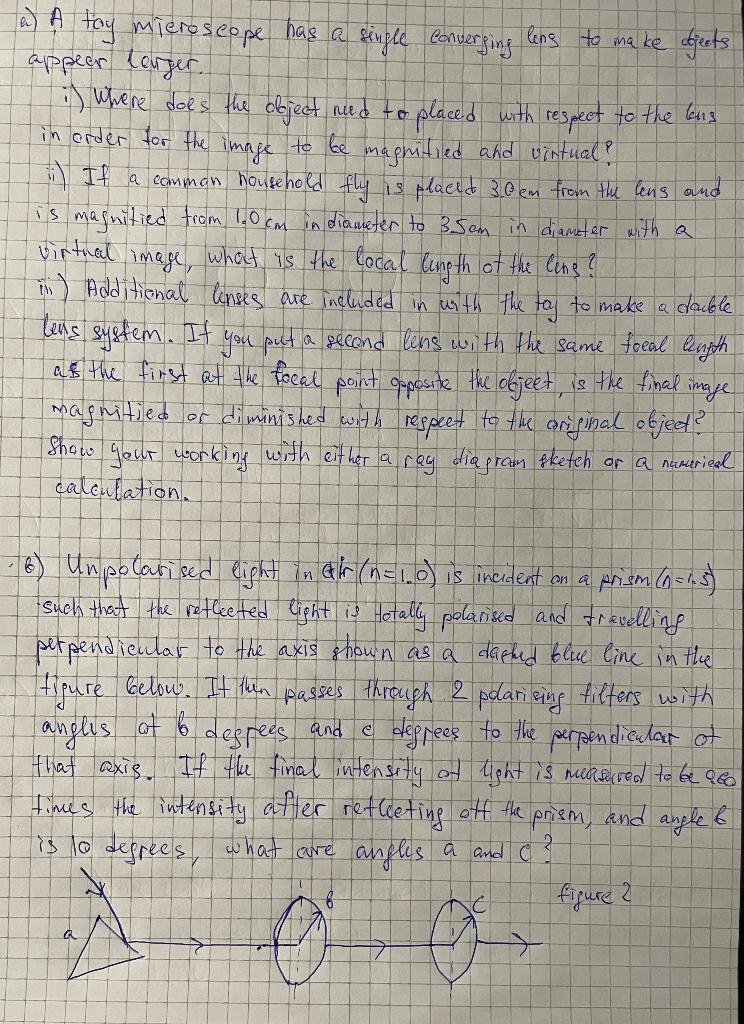 a) A toy microscope has a single converging lens to make objects
appeer larger.
i) Where does the object need to placed with respect to the lens
in order for the image to be magnified and virtual?
ii) If a common household fly is placed 3.0 cm from the lens and
is magnified from 1.0 cm in diameter to 3.5 cm in diameter with a
virtual image, what is the focal length of the lens?
iii) Additional lenses are included in with the toy to make a double
lens system. If you put a second lens with the same focal length
as the first at the focal point opposite the object, is the final image
magnified or diminished with respect to the original object?
Show your working with either a ray diagram sketch or a numerical
calculation.
b) Unpolarised light in air (n=1.0) is incident on a prism (n=1.5)
such that the reflected light is totally polarised and travelling
perpendicular to the axis shown as a dashed blue line in the
figure below. It then passes through 2 polarizing filters with
angles of b degrees and c degrees to the perpendicular of
that axis. If the final intensity of light is measured to be 0.60
times the intensity after reflecting off the prism, and angle b
is 10 degrees, what are angles a and c?
figure 2
a
b
c